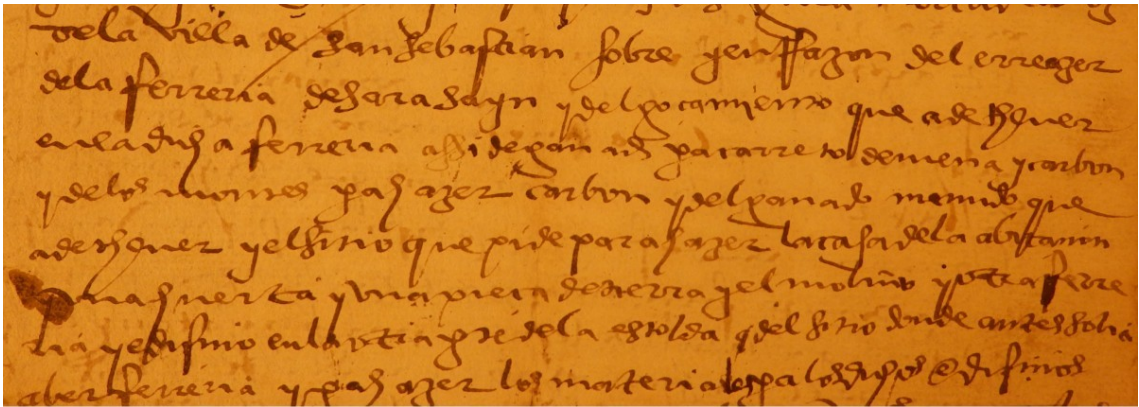 de la villa de san sebastian sobre y en Razon del erreçer
de la ferreria de sarasayn y del goçamiento que a de thener
en la dicha ferreria assi de ganado pa carreto de mena y carbon
y de los montes pa haçer carbon y del ganado menudo que
a de thener y el sitio que pide para haçer la casa de la abitaçion
y una huerta y una pieça de tierra y el molino y otra ferre
ria y edifiçio en la otra parte de la estolda y del sitio donde antes solia
aber ferreria y pa haçer los materiales pa los dichos edifiçios